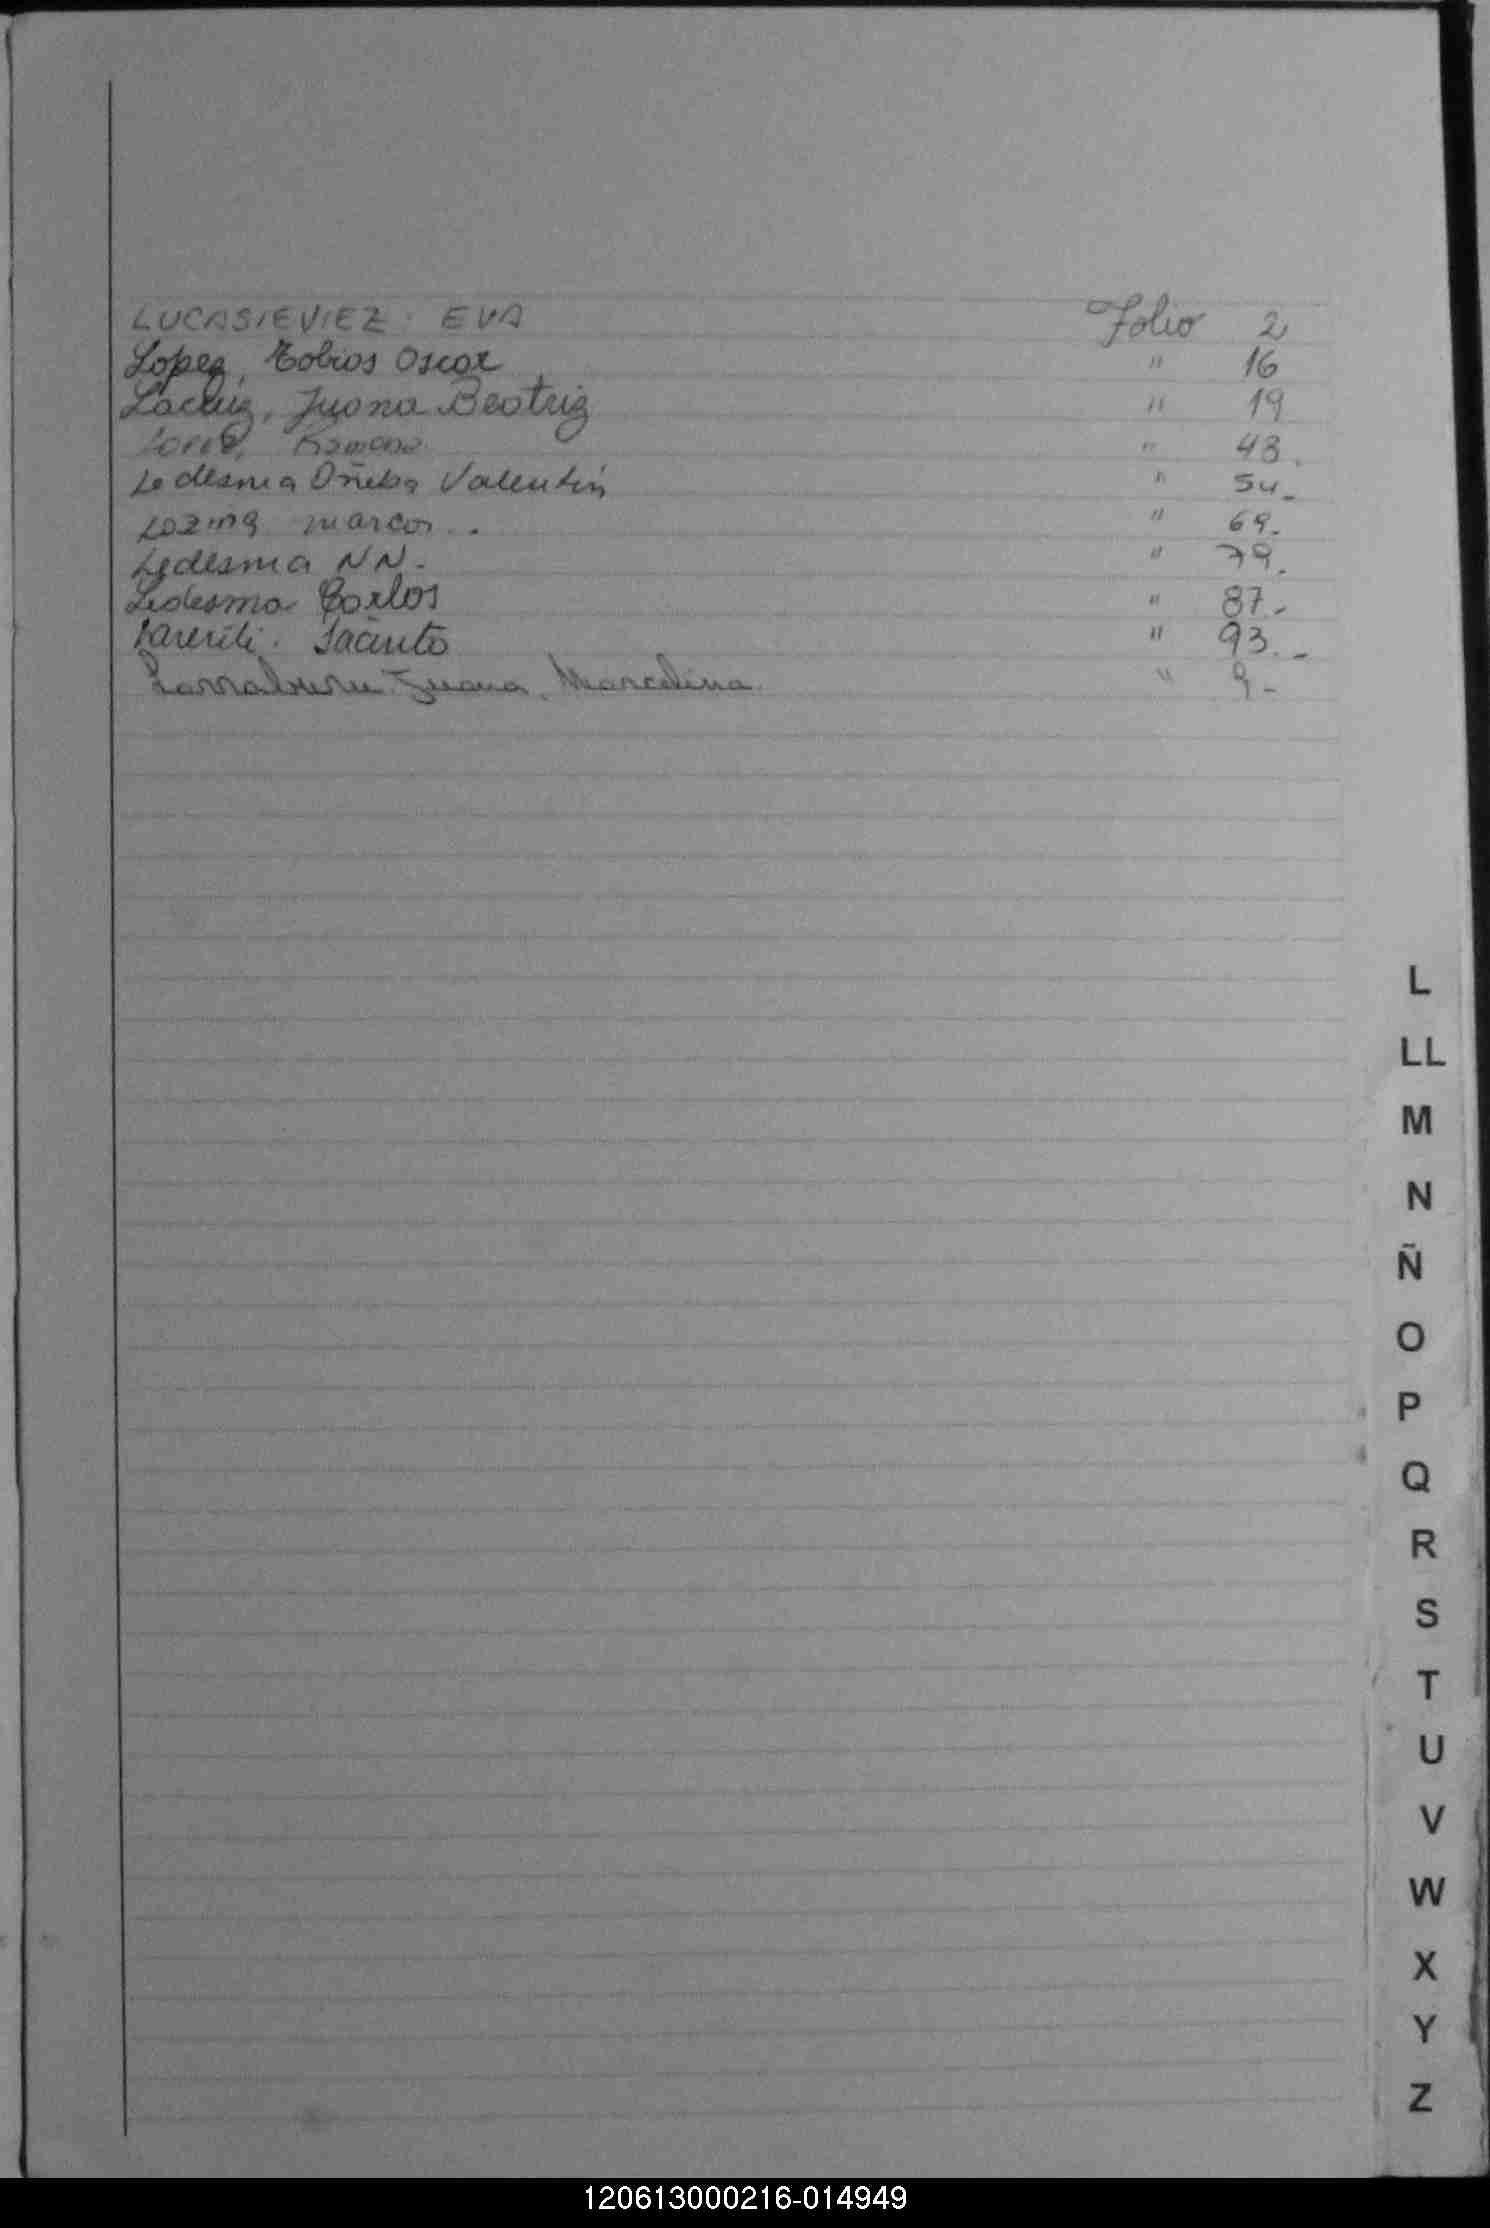 LUCASIEVIEZ. EVA Folio 2
Lopez, Tobios Oscar " 16
Lacluiz, Juana Beatriz " 19
Ramona " 43.
Ledesma Oñeba Valentín " 54.-
Lozina marcos.. " 69.
Ledesma NN. " 79.
Ledesma Carlos " 87.-
Jacinto " 93.-
Larraburu Juana, Marcelina. " 9-
L
LL
M
N
Ñ
O
P
Q
R
S
T
U
V
W
X
Y
Z
120613000216-014949